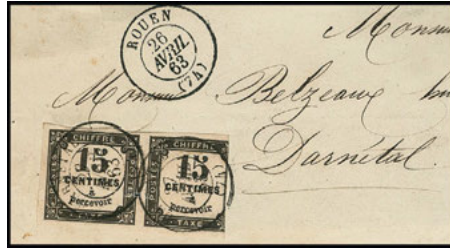 ROUEN
26
AVRIL
63
(74)
Monsieur Belzeaux
Darnétal.
CHIFFRE
15
CENTIMES
à
percevoir
TAXE
POSTES
CHIFFRE
15
CENTIMES
à
percevoir
TAXE
POSTES